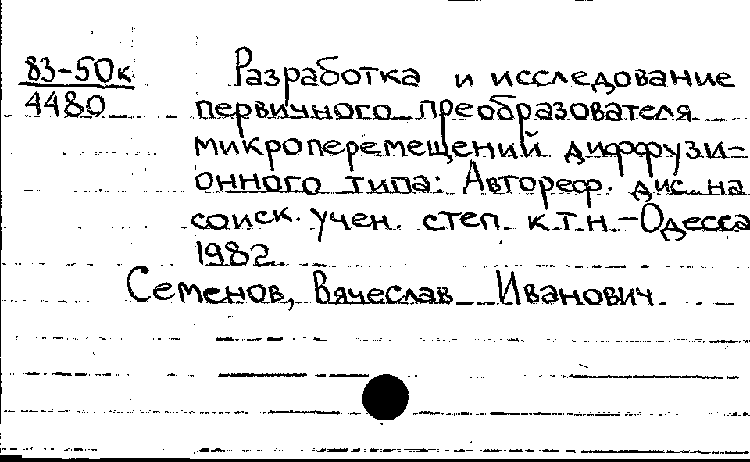 83-50к
4480
Разработка и исследование
первичного преобразователя
микроперемещений диффузи-
онного типа: Автореф. дис. на
соиск. учен. степ. к.т.н.-Одесса
1982.
Семенов, Вячеслав Иванович.